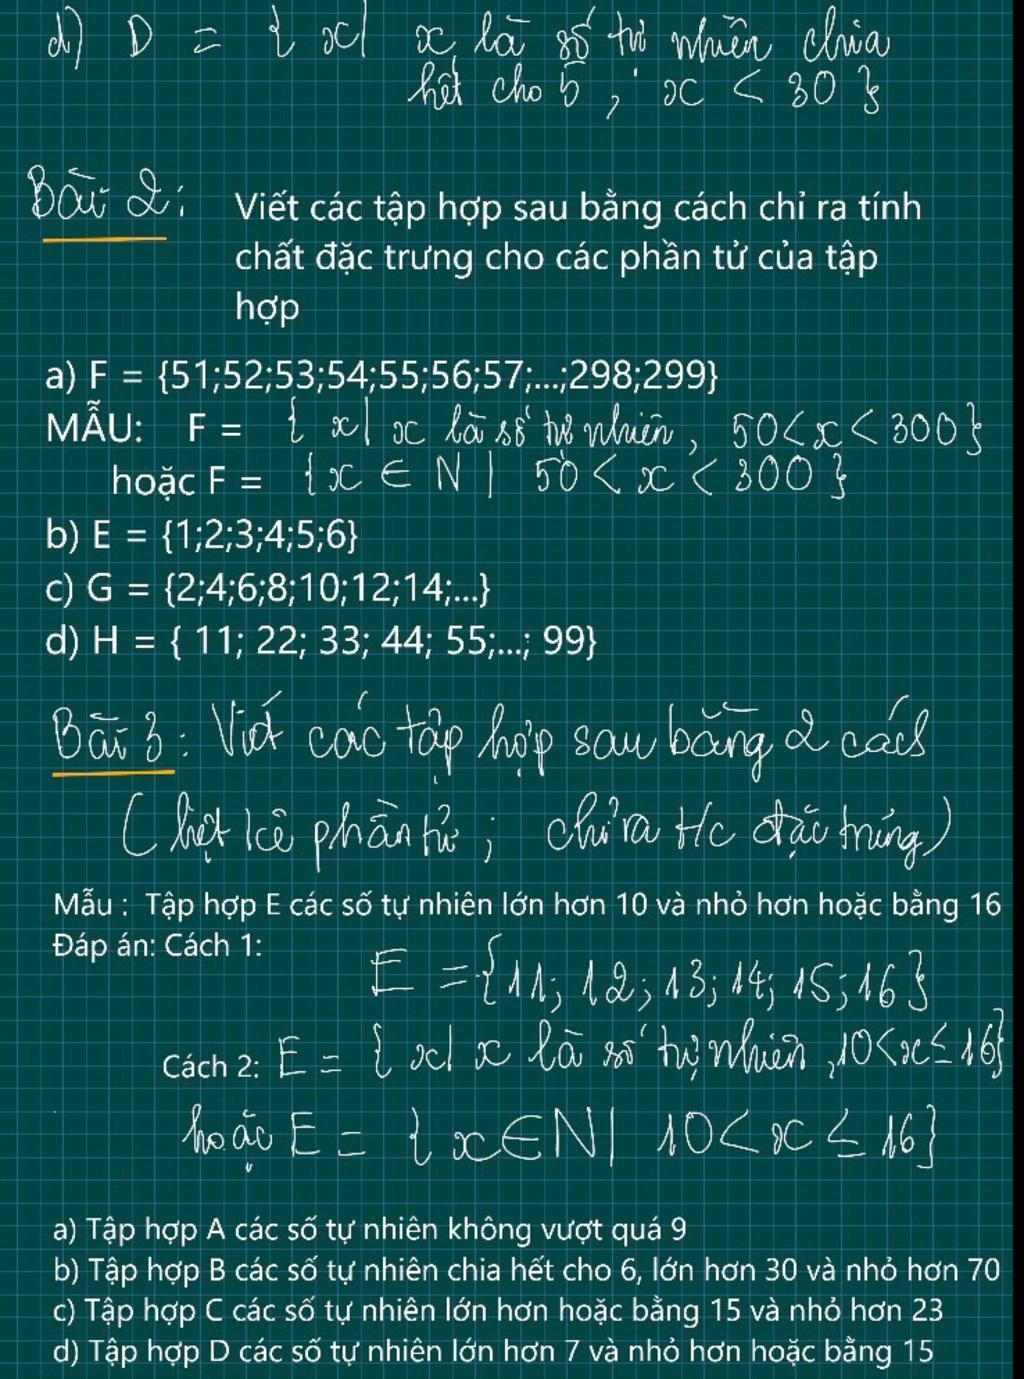 d) D = { x| x là số tự nhiên chia
hết cho 5 ; x < 30 }
Bài 2: Viết các tập hợp sau bằng cách chỉ ra tính
chất đặc trưng cho các phần tử của tập
hợp
a) F = {51;52;53;54;55;56;57;...;298;299}
MẪU: F = { x| x là số tự nhiên, 50<x<300}
hoặc F = {x ∈ N | 50 < x < 300}
b) E = {1;2;3;4;5;6}
c) G = {2;4;6;8;10;12;14;...}
d) H = { 11; 22; 33; 44; 55;...; 99}
Bài 3: Viết các tập hợp sau bằng 2 cách
( liệt kê phần tử ; chỉ ra t/c đặc trưng)
Mẫu : Tập hợp E các số tự nhiên lớn hơn 10 và nhỏ hơn hoặc bằng 16
Đáp án: Cách 1:
E = {11; 12; 13; 14; 15; 16}
Cách 2: E = { x| x là số tự nhiên ,10<x≤16}
hoặc E = { x∈N| 10<x≤16}
a) Tập hợp A các số tự nhiên không vượt quá 9
b) Tập hợp B các số tự nhiên chia hết cho 6, lớn hơn 30 và nhỏ hơn 70
c) Tập hợp C các số tự nhiên lớn hơn hoặc bằng 15 và nhỏ hơn 23
d) Tập hợp D các số tự nhiên lớn hơn 7 và nhỏ hơn hoặc bằng 15